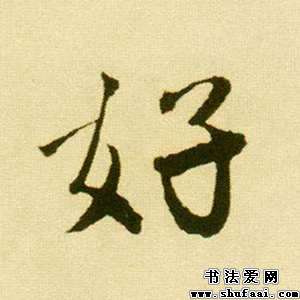 好
书法爱网
www.shufaai.com